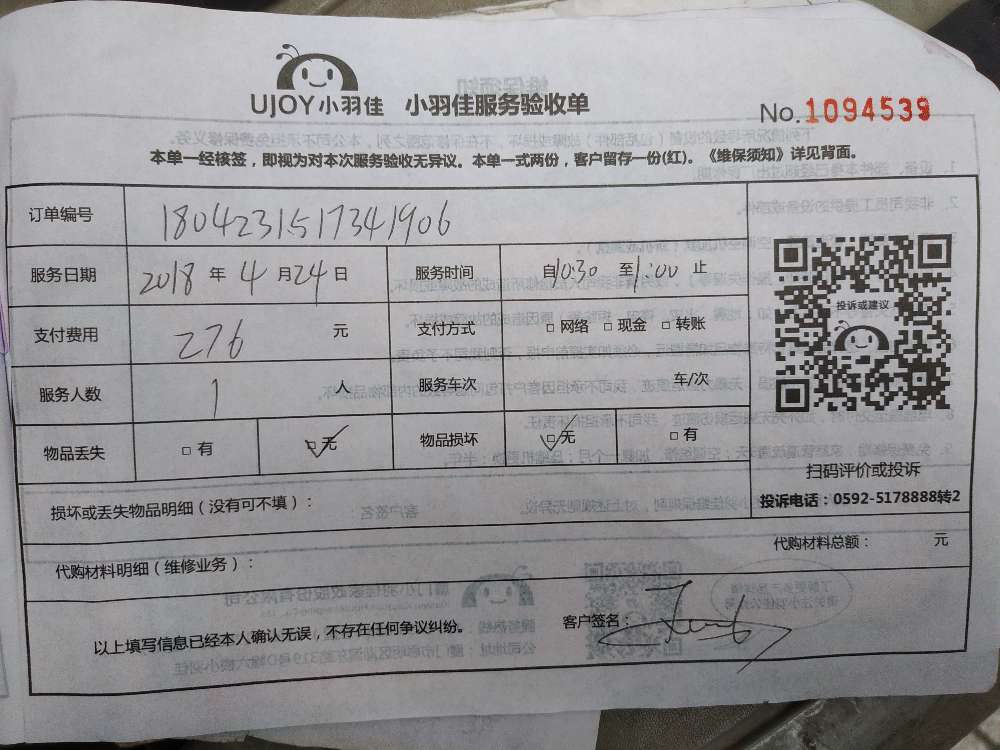 UJOY小羽佳 小羽佳服务验收单
No.1094539
本单一经核签，即视为对本次服务验收无异议。本单一式两份，客户留存一份(红)。《维保须知》详见背面。
订单编号 1804231517341906
服务日期 2018 年 4 月 24 日 服务时间 自10:30 至1:00 止
投诉或建议
支付费用 276 元 支付方式 □ 网络 □ 现金 □ 转账
服务人数 1 人 服务车次 车/次
物品丢失 □ 有 ☑ 无 物品损坏 ☑ 无 □ 有
扫码评价或投诉
投诉电话：0592-5178888转2
损坏或丢失物品明细（没有可不填）：
代购材料明细（维修业务）：
代购材料总额： 元
以上填写信息已经本人确认无误，不存在任何争议纠纷。
客户签名：